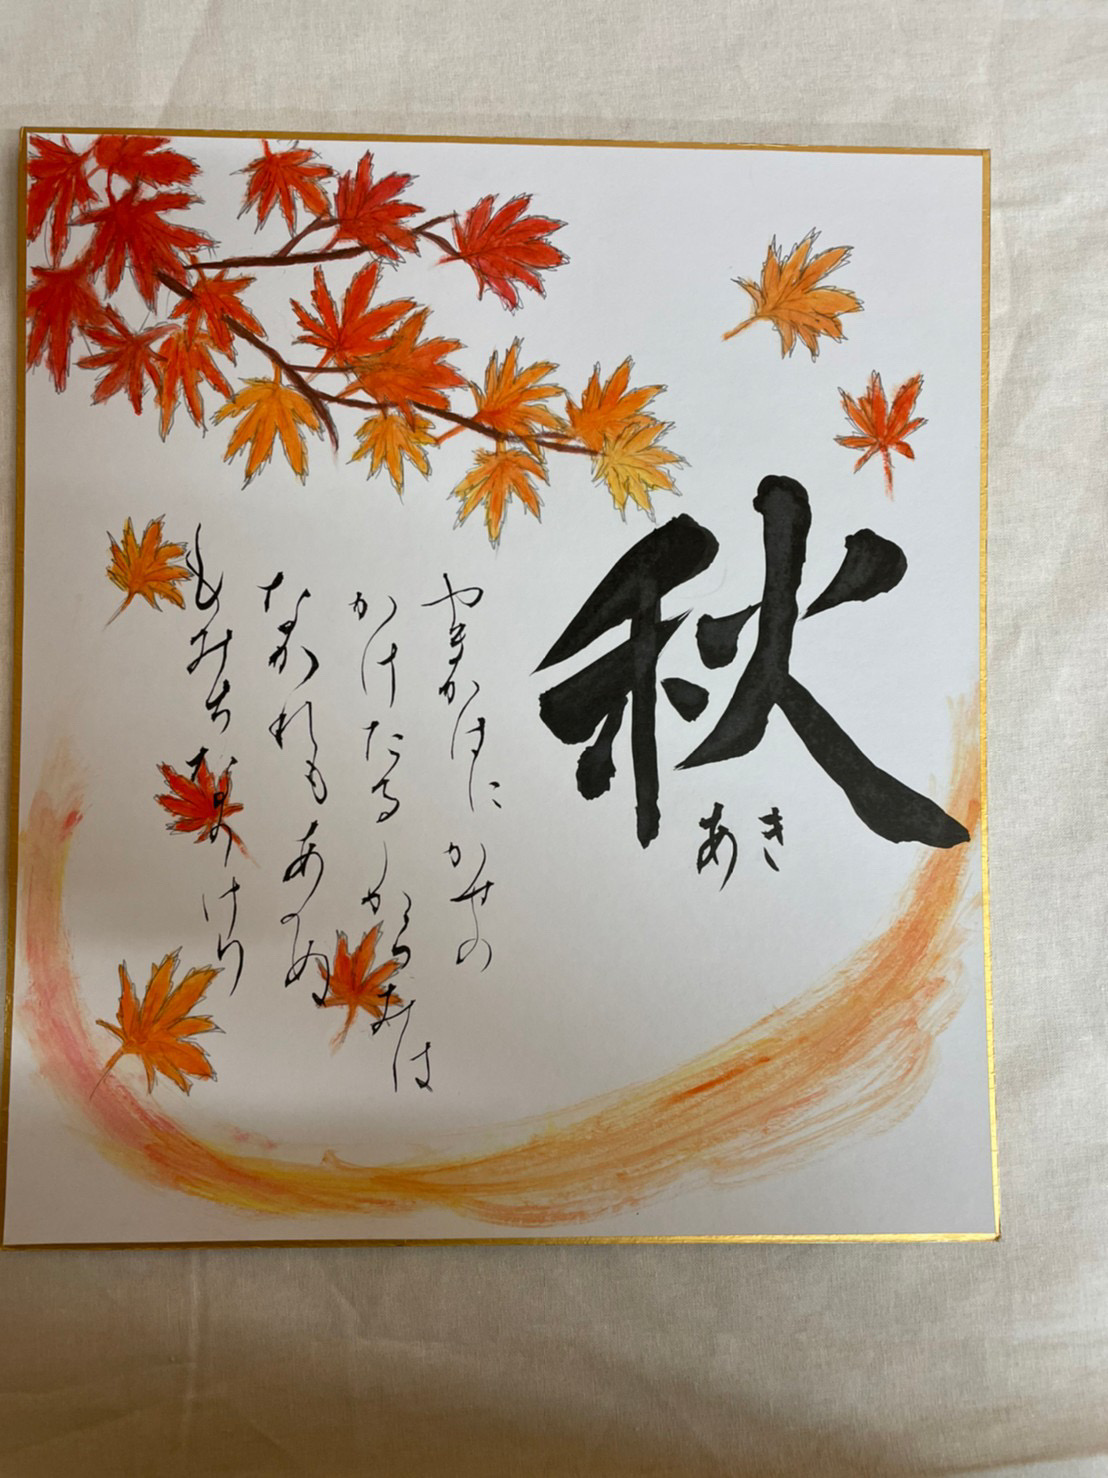 秋
あき
やまかはにかせの
かけたるしからみは
なかれもあへぬ
もみちなりけり